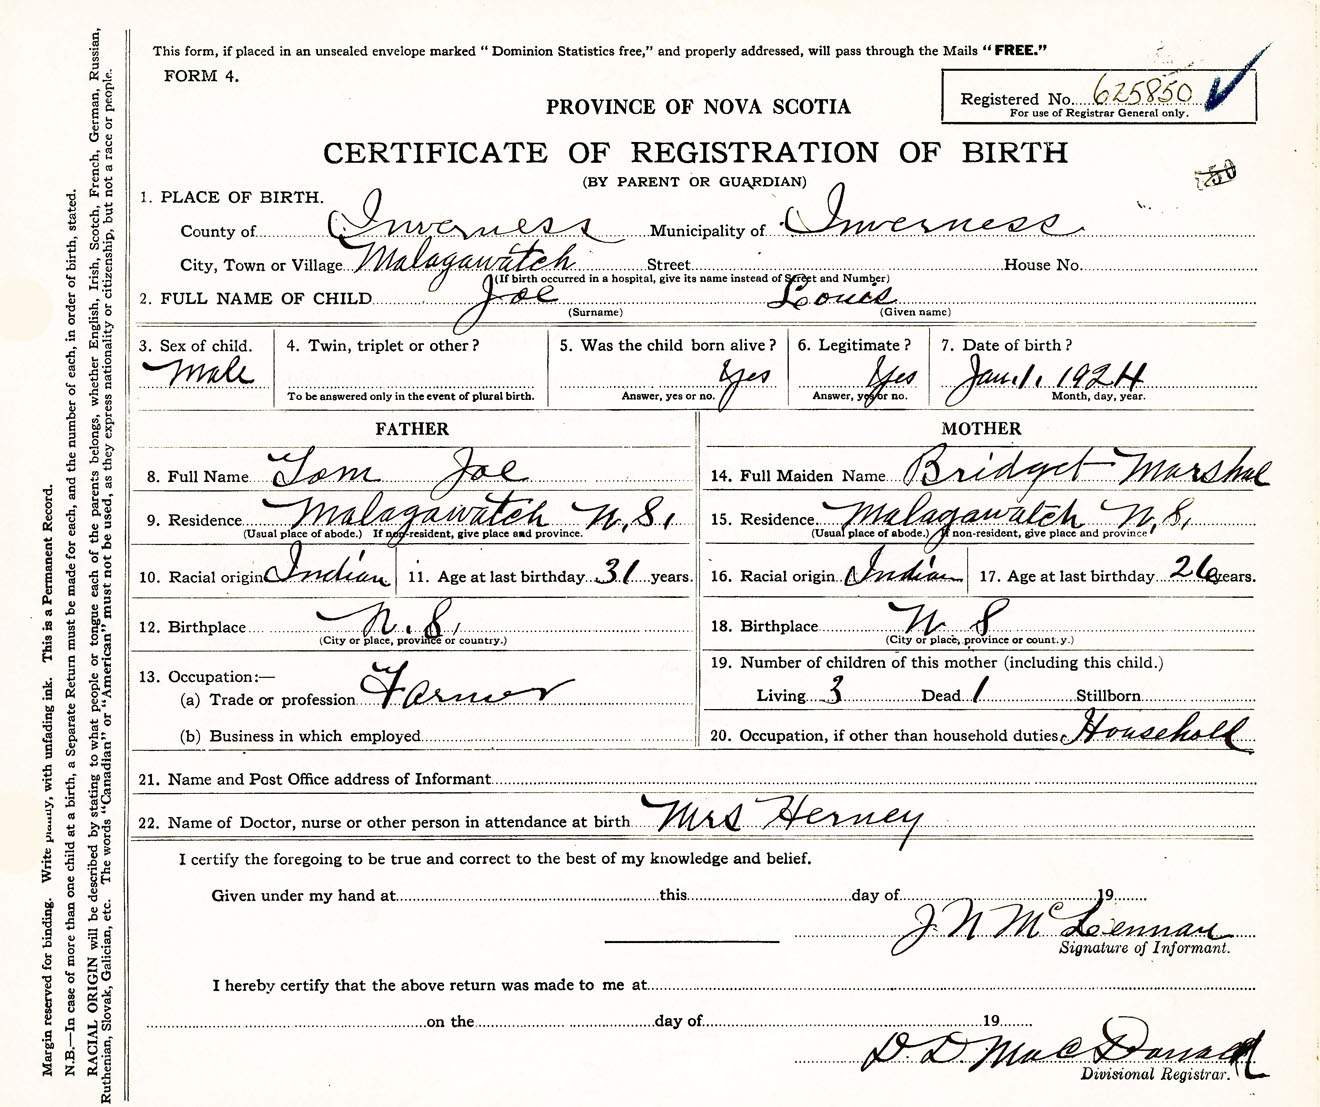 This form, if placed in an unsealed envelope marked "Dominion Statistics free," and properly addressed, will pass through the Mails "FREE."
FORM 4.
Registered No. 625850
For use of Registrar General only.
PROVINCE OF NOVA SCOTIA
CERTIFICATE OF REGISTRATION OF BIRTH
(BY PARENT OR GUARDIAN)
1. PLACE OF BIRTH.
County of Inverness Municipality of Inverness
City, Town or Village Malagawatch Street House No.
(If birth occurred in a hospital, give its name instead of Street and Number)
2. FULL NAME OF CHILD Joe Louis
(Surname) (Given name)
3. Sex of child. 4. Twin, triplet or other? 5. Was the child born alive? 6. Legitimate? 7. Date of birth?
Male Yes Yes Jan. 1. 1924
To be answered only in the event of plural birth. Answer, yes or no. Answer, yes or no. Month, day, year.
FATHER MOTHER
8. Full Name Tom Joe 14. Full Maiden Name Bridget Marshal
9. Residence Malagawatch N.S. 15. Residence Malagawatch N.S.
(Usual place of abode.) If non-resident, give place and province. (Usual place of abode.) If non-resident, give place and province
10. Racial origin Indian 11. Age at last birthday 31 years. 16. Racial origin Indian 17. Age at last birthday 26 years.
12. Birthplace N.S. 18. Birthplace N S
(City or place, province or country.) (City or place, province or count.y.)
13. Occupation:— 19. Number of children of this mother (including this child.)
(a) Trade or profession Farmer Living 3 Dead 1 Stillborn
(b) Business in which employed 20. Occupation, if other than household duties Household
21. Name and Post Office address of Informant
22. Name of Doctor, nurse or other person in attendance at birth Mrs Herney
I certify the foregoing to be true and correct to the best of my knowledge and belief.
Given under my hand at this day of 19
J N McLennan
Signature of Informant.
I hereby certify that the above return was made to me at
on the day of 19
D. D. MacDonald
Divisional Registrar.
Margin reserved for binding. Write plainly, with unfading ink. This is a Permanent Record.
N.B.—In case of more than one child at a birth, a Separate Return must be made for each, and the number of each, in order of birth, stated.
RACIAL ORIGIN will be described by stating to what people or tongue each of the parents belongs, whether English, Irish, Scotch, French, German, Russian,
Ruthenian, Slovak, Galician, etc. The words "Canadian" or "American" must not be used, as they express nationality or citizenship, but not a race or people.